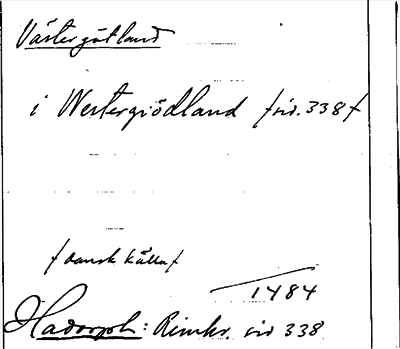 Västergötland
i Westergiödland /sid. 338/
/dansk källa/
1484
Hadorph: Rimkr. sid 338